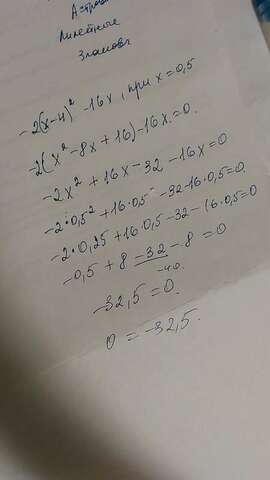 Линейные
-2(x-4)² -16x, при x=0,5
-2(x² -8x+16)-16x=0.
-2x² +16x-32 -16x=0
-2·0,5² +16·0,5 -32-16·0,5=0.
-2·0,25+16·0,5-32-16·0,5=0
-0,5+8 -32 -8 =0
-40.
-32,5=0.
0 = -32,5.